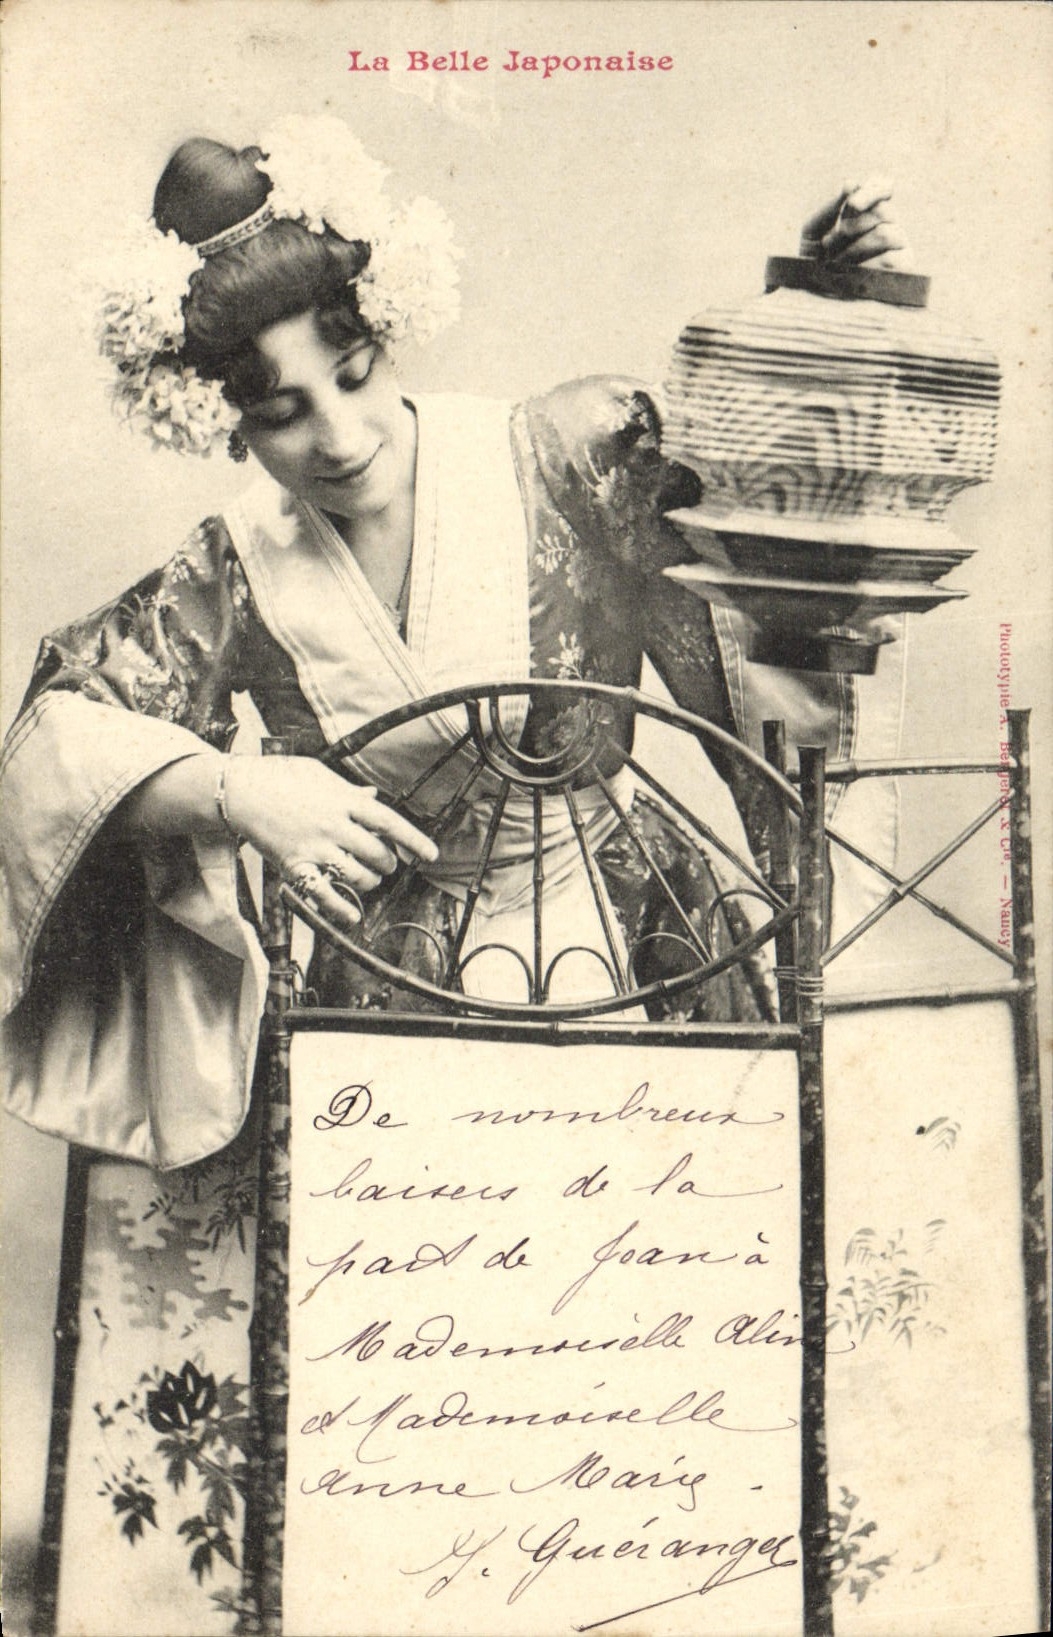 La Belle Japonaise
Phototypie A. Bergeret & Cie. — Nancy
De nombreux
baisers de la
part de Jean à
Mademoiselle Aline
et Mademoiselle
Anne Marie.
J. Guéranger